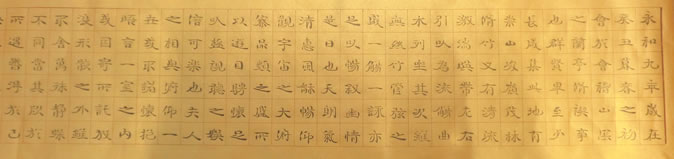 永和九年歲在
癸丑暮春之初
會於會稽山陰
之蘭亭脩禊事
也群賢畢至少
長咸集此地有
崇山峻嶺茂林
脩竹又有清流
激湍映帶左右
引以為流觴曲
水列坐其次雖
無絲竹管弦之
盛一觴一詠亦
足以暢敘幽情
是日也天朗氣
清惠風和暢仰
觀宇宙之大俯
察品類之盛所
以遊目騁懷足
以極視聽之娛
信可樂也夫人
之相與俯仰一
世或取諸懷抱
晤言一室之內
或因寄所託放
浪形骸之外雖
取舍萬殊靜躁
不同當其欣於
所遇暫得於己